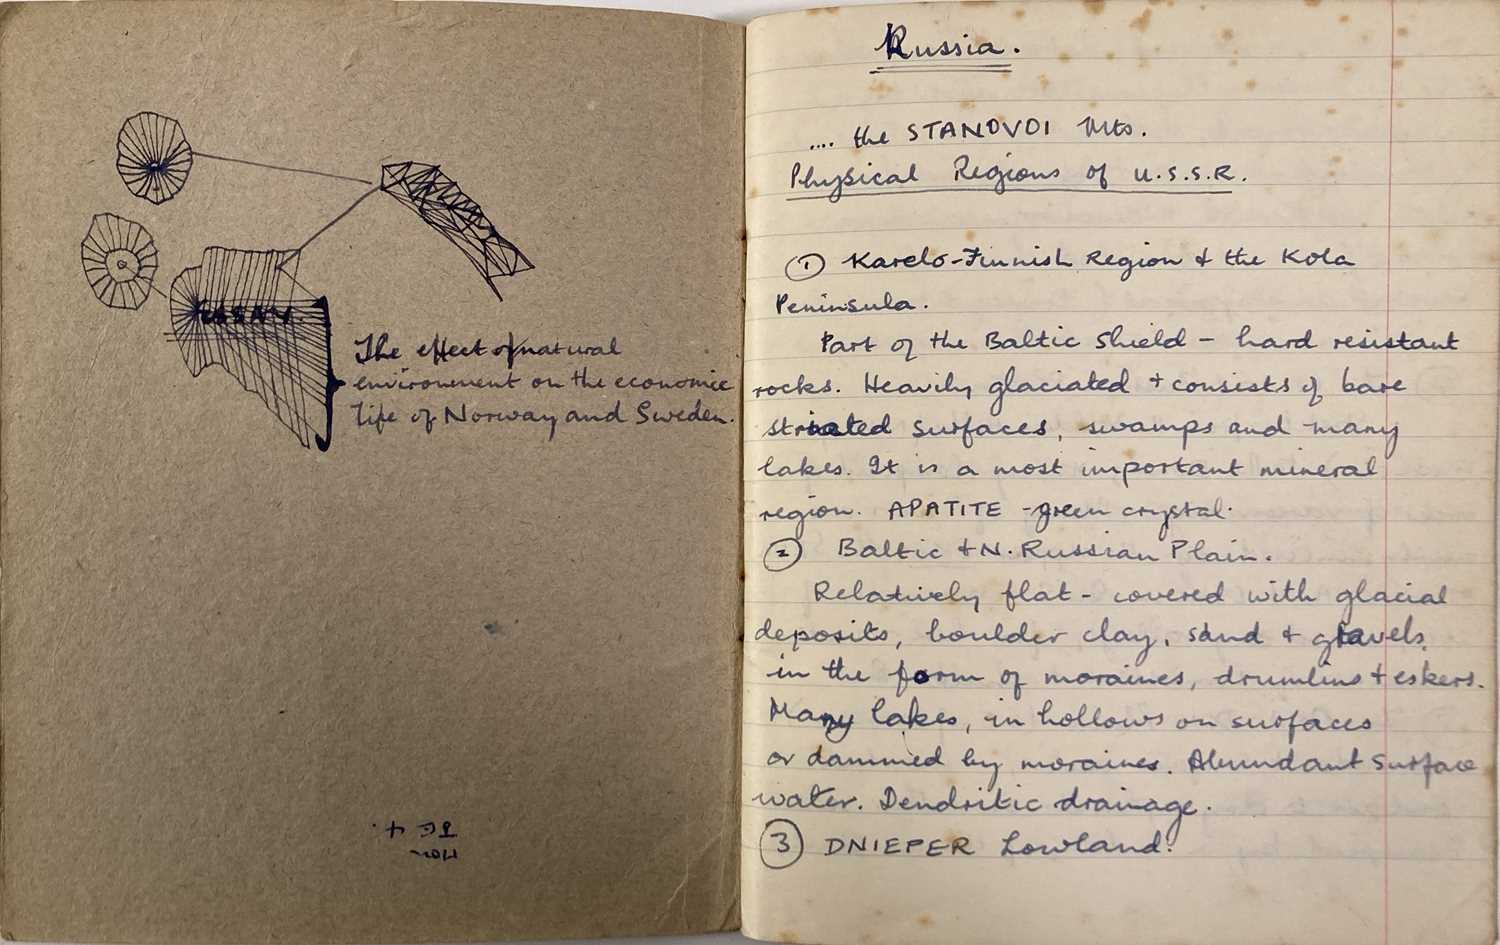 ESSAY.
The effect of natural
environment on the economic
life of Norway and Sweden.
Russia.
.... the STANOVOI Mts.
Physical Regions of U.S.S.R.
① Karelo-Finnish Region & the Kola
Peninsula.
Part of the Baltic Shield - hard resistant
rocks. Heavily glaciated + consists of bare
striated surfaces, swamps and many
lakes. It is a most important mineral
region. APATITE - green crystal.
② Baltic & N. Russian Plain.
Relatively flat - covered with glacial
deposits, boulder clay, sand & gravels,
in the form of moraines, drumlins + eskers.
Many lakes, in hollows on surfaces
or dammed by moraines. Abundant surface
water. Dendritic drainage.
③ DNIEPER Lowland.